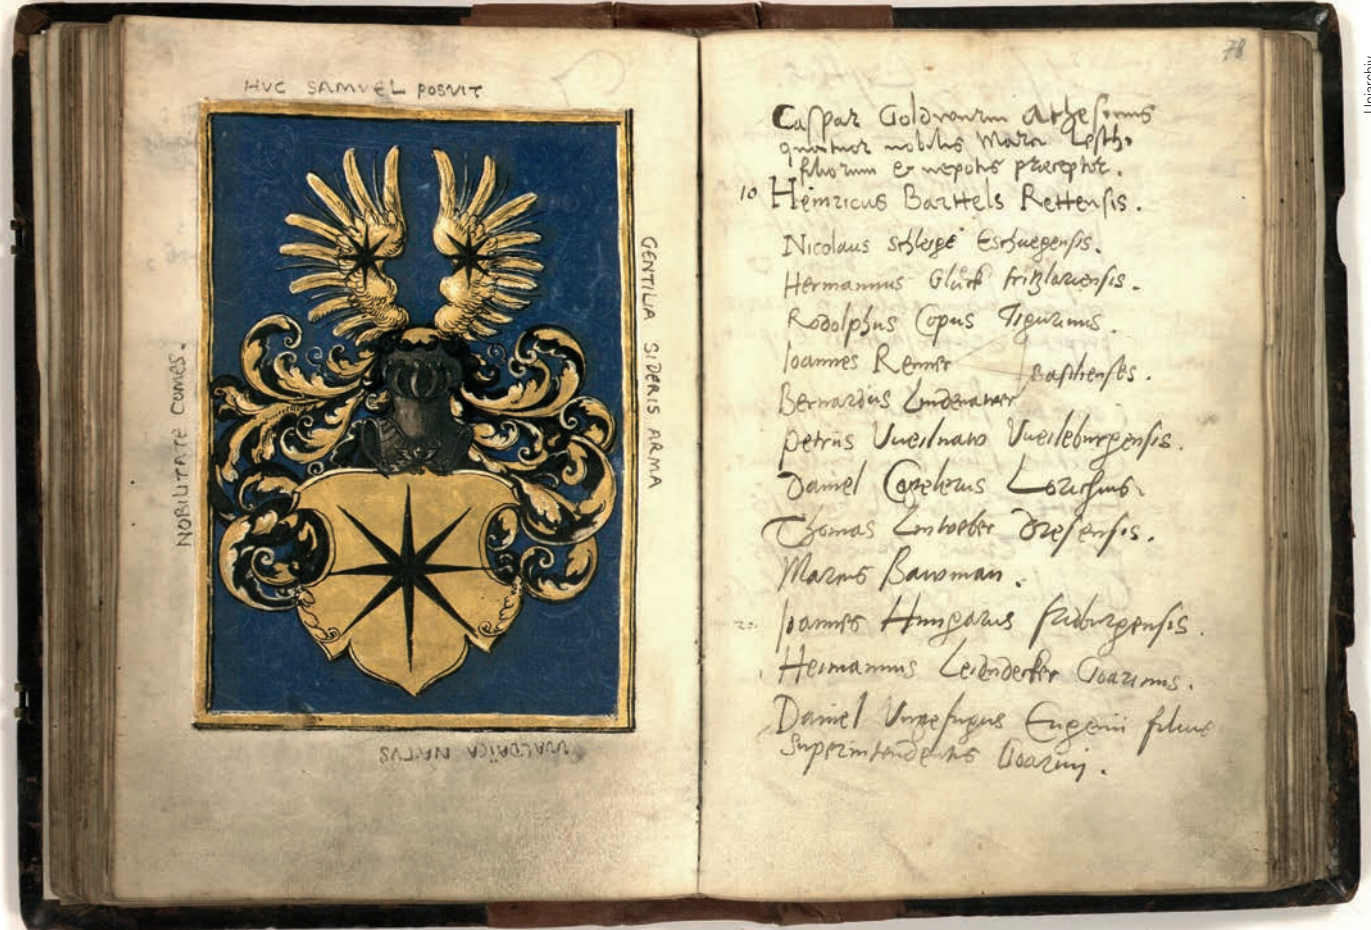 HVC SAMVEL POSVIT
GENTILIA SIDERIS ARMA
WALDRICA NATVS
NOBILITATE COMES.
78
Caspar Goldwurm Athesinus
quatuor nobilis Marci
filiorum & nepotis præceptor.
10 Heinricus Barttels Rettensis.
Nicolaus Eschuegensis.
Hermannus Glück fritzlariensis.
Rodolphus Copus Tigurinus.
Ioannes Renner
Basilienses.
Bernardus Lindenawer
Petrus Vueilnaw Vueileburgensis.
Daniel Lorichius.
Thomas
Marcus Bawman.
Ioannes Hungarus fridburgensis.
Hermannus Leiendecker Goarinus.
Daniel Eugenii filius
Superintendentis Goarini.
Uniarchiv